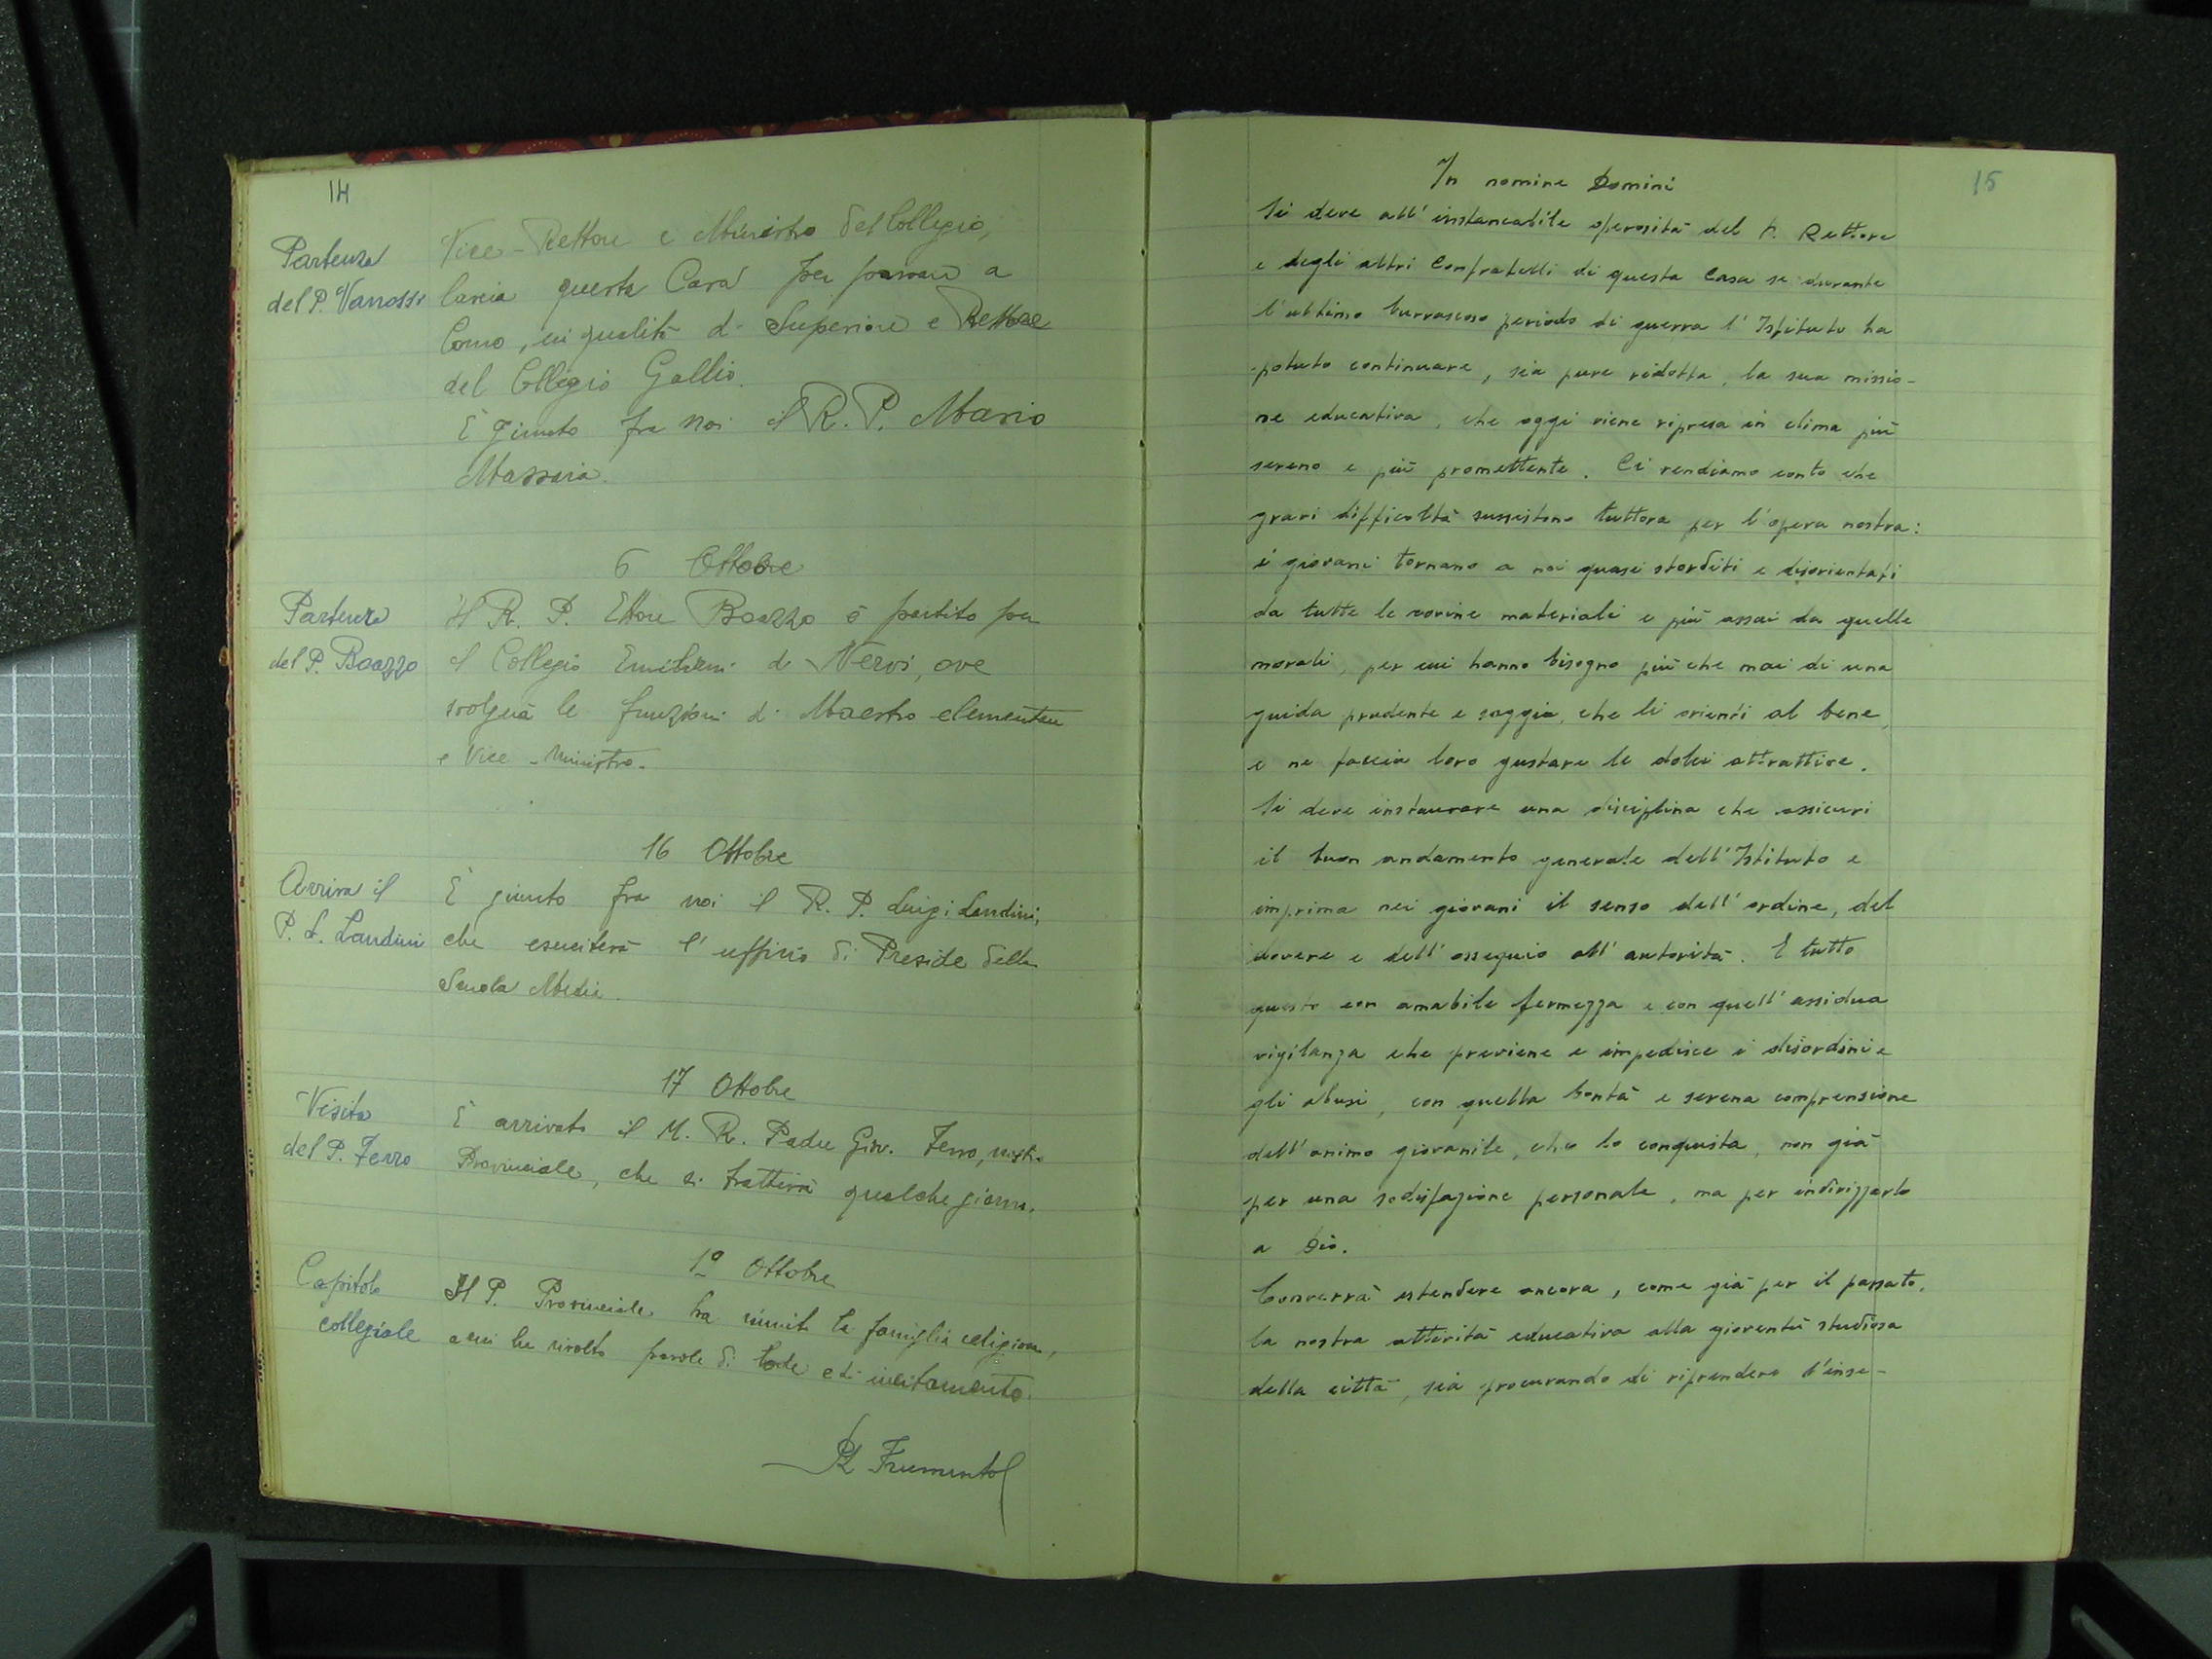 14
Partenza
del P. Vanossi
Vice-Rettore e Ministro del Collegio,
lascia questa Casa per passare a
Como, in qualità di Superiore e Rettore
del Collegio Gallio.
È giunto fra noi il R. P. Mario
Massaia.
6 Ottobre
Partenza
del P. Boazzo
Il R. P. Ettore Boazzo è partito per
il Collegio Emiliani di Nervi, ove
svolgerà le funzioni di Maestro elementare
e Vice-Ministro.
16 Ottobre
Arriva il
P. L. Landini
È giunto fra noi il R. P. Luigi Landini,
che eserciterà l'uffizio di Preside della
Scuola Media.
17 Ottobre
Visita
del P. Ferro
È arrivato il M. R. Padre Giov. Ferro, nostro
Provinciale, che si tratterrà qualche giorno.
19 Ottobre
Capitolo
collegiale
Il P. Provinciale ha riunito la famiglia religiosa,
a cui ha rivolto parole di lode e di incitamento.
Frumento
15
In nomine Domini
Si deve all'instancabile operosità del P. Rettore
e degli altri Confratelli di questa Casa se durante
l'ultimo burrascoso periodo di guerra l'Istituto ha
potuto continuare, sia pure ridotta, la sua missio-
ne educativa, che oggi viene ripresa in clima più
sereno e più promettente. Ci rendiamo conto che
gravi difficoltà sussistono tuttora per l'opera nostra:
i giovani tornano a noi quasi storditi e disorientati
da tutte le rovine materiali e più assai da quelle
morali, per cui hanno bisogno più che mai di una
guida prudente e saggia, che li orienti al bene,
e ne faccia loro gustare le dolci attrattive.
Si deve instaurare una disciplina che assicuri
il buon andamento generale dell'Istituto e
imprima nei giovani il senso dell'ordine, del
dovere e dell'ossequio all'autorità. E tutto
questo con amabile fermezza e con quell'assidua
vigilanza che previene e impedisce i disordini e
gli abusi, con quella bontà e serena comprensione
dell'animo giovanile, che lo conquista, non già
per una sodisfazione personale, ma per indirizzarlo
a Dio.
Converrà estendere ancora, come già per il passato,
la nostra attività educativa alla gioventù studiosa
della città, sia procurando di riprendere l'inse-